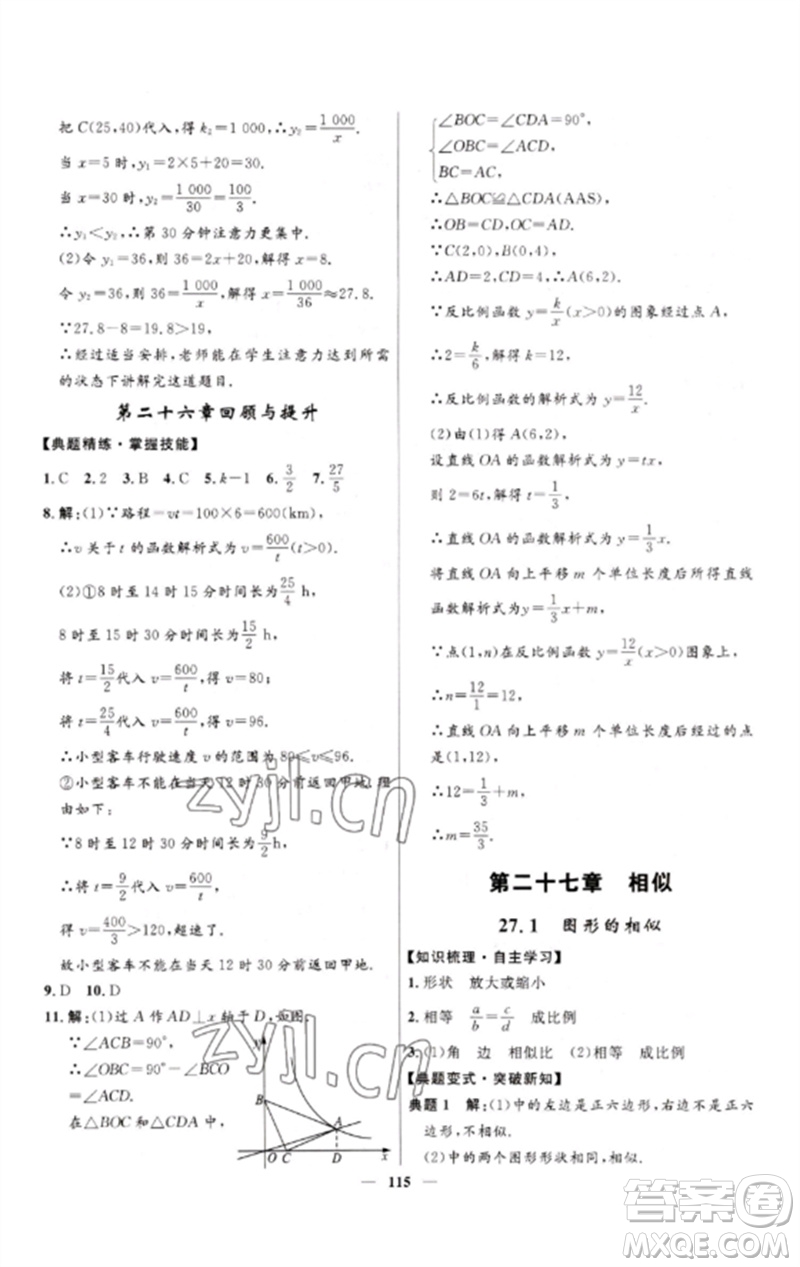 把 C(25,40)代入,得 k₂=1 000,∴y₂=1 000/x.
当 x=5 时,y₁=2×5+20=30.
当 x=30 时,y₂=1 000/30=100/3.
∴y₁<y₂,∴第 30 分钟注意力更集中.
(2)令 y₁=36,则 36=2x+20,解得 x=8.
令 y₂=36,则 36=1 000/x,解得 x=1 000/36≈27.8.
∵27.8-8=19.8>19,
∴经过适当安排,老师能在学生注意力达到所需
的状态下讲解完这道题目.
第二十六章回顾与提升
【典题精练·掌握技能】
1.C 2.2 3.B 4.C 5.k-1 6.3/2 7.27/5
8.解:(1)∵路程=vt=100×6=600(km),
∴v 关于 t 的函数解析式为 v=600/t(t>0).
(2)①8 时至 14 时 15 分时间长为25/4 h,
8 时至 15 时 30 分时间长为15/2 h,
将 t=15/2代入 v=600/t,得 v=80;
将 t=25/4代入 v=600/t,得 v=96.
∴小型客车行驶速度 v 的范围为 80≤v≤96.
②小型客车不能在当天 12 时 30 分前返回甲地.理
由如下:
∵8 时至 12 时 30 分时间长为9/2 h,
∴将 t=9/2代入 v=600/t,
得 v=400/3>120,超速了.
故小型客车不能在当天 12 时 30 分前返回甲地.
9.D 10.D
11.解:(1)过 A 作 AD⊥x 轴于 D,如图.
∵∠ACB=90°,
∴∠OBC=90°-∠BCO
=∠ACD.
在△BOC 和△CDA 中,
y
B
A
O C D x
∠BOC=∠CDA=90°,
∠OBC=∠ACD,
BC=AC,
∴△BOC≌△CDA(AAS),
∴OB=CD,OC=AD.
∵C(2,0),B(0,4),
∴AD=2,CD=4,∴A(6,2).
∵反比例函数 y=k/x(x>0)的图象经过点 A,
∴2=k/6,解得 k=12,
∴反比例函数的解析式为 y=12/x.
(2)由(1)得 A(6,2),
设直线 OA 的函数解析式为 y=tx,
则 2=6t,解得 t=1/3,
∴直线 OA 的函数解析式为 y=1/3x,
将直线 OA 向上平移 m 个单位长度后所得直线
函数解析式为y=1/3x+m,
∵点(1,n)在反比例函数 y=12/x(x>0)图象上,
∴n=12/1=12,
∴直线 OA 向上平移 m 个单位长度后经过的点
是(1,12),
∴12=1/3+m,
∴m=35/3.
第二十七章 相似
27.1 图形的相似
【知识梳理·自主学习】
1.形状 放大或缩小
2.相等 a/b=c/d 成比例
3.(1)角 边 相似比 (2)相等 成比例
【典题变式·突破新知】
典题 1 解:(1)中的左边是正六边形,右边不是正六
边形,不相似.
(2)中的两个图形形状相同,相似.
115
zyjl.cn
zyjl.cn
答案圈